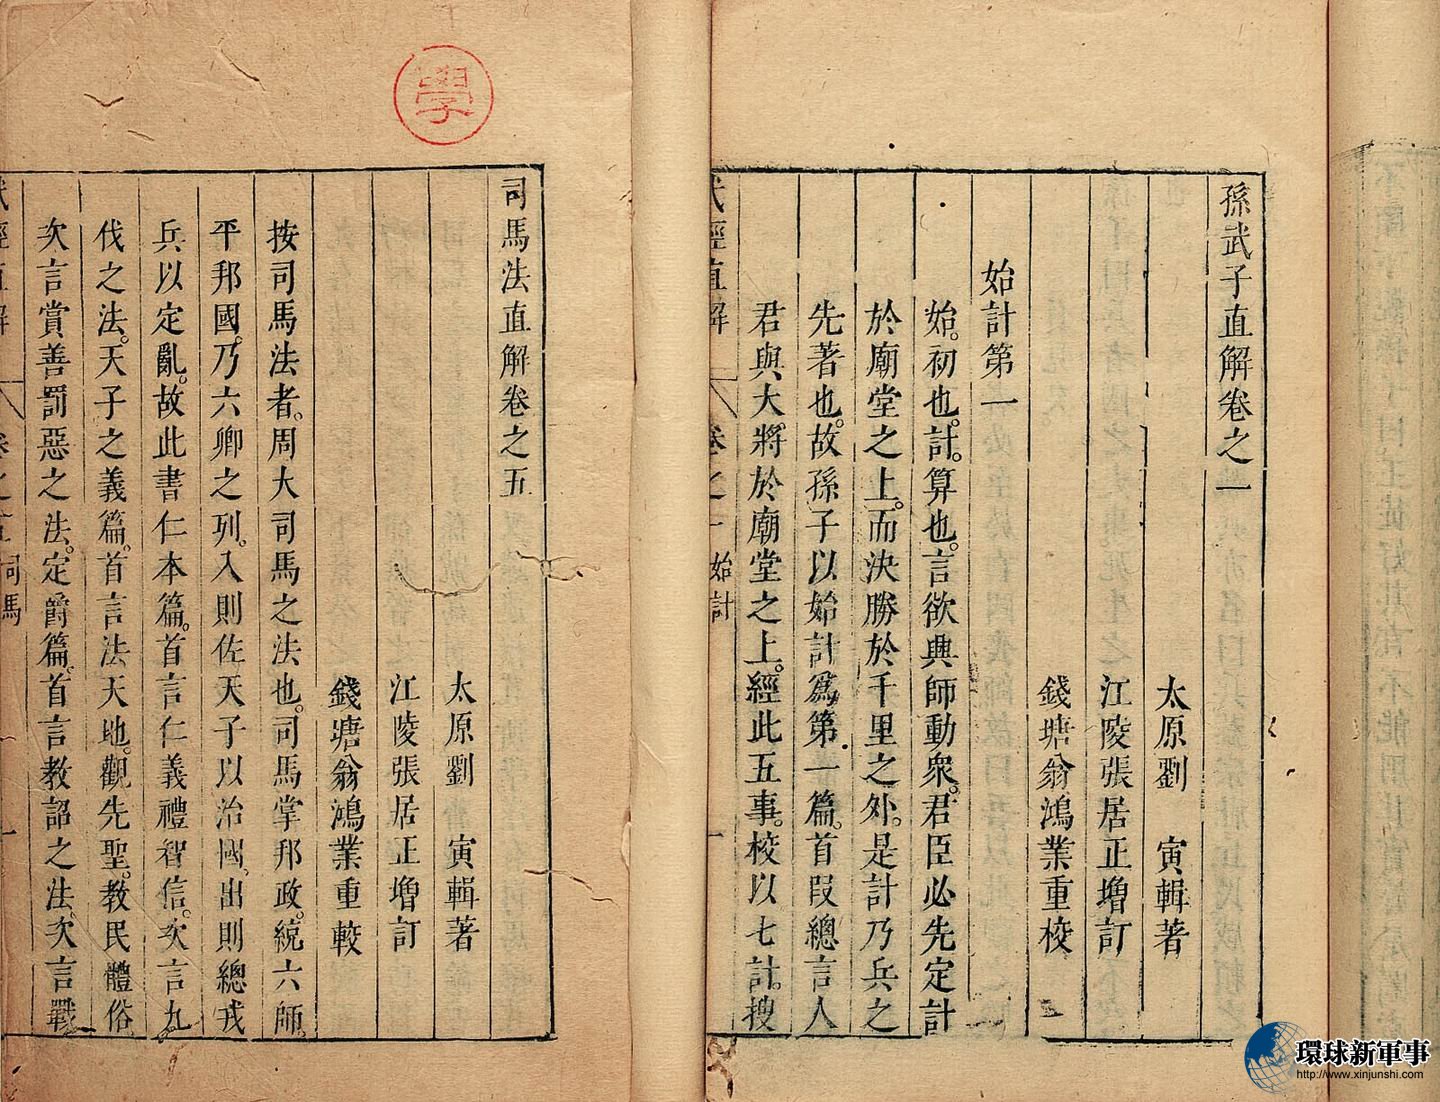 孫武子直解卷之一
太原劉 寅輯著
江陵張居正增訂
錢塘翁鴻業重校
始計第一
始。初也。計。算也。言欲興師動衆。君臣必先定計
於廟堂之上。而決勝於千里之外。是計乃兵之
先著也。故孫子以始計爲第一篇。首段總言人
君與大將於廟堂之上。經此五事。校以七計。搜
武經直解 卷之一 始計 一
學
司馬法直解卷之五
太原劉 寅輯著
江陵張居正增訂
錢塘翁鴻業重較
按司馬法者。周大司馬之法也。司馬掌邦政。統六師。
平邦國。乃六卿之列。入則佐天子以治國。出則總戎
兵以定亂。故此書仁本篇。首言仁義禮智信。次言九
伐之法。天子之義篇。首言法天地。觀先聖。教民體俗
次言賞善罰惡之法。定爵篇。首言教詔之法。次言戰
武經直解 卷之五 司馬 一
環球新軍事
http://www.xinjunshi.com